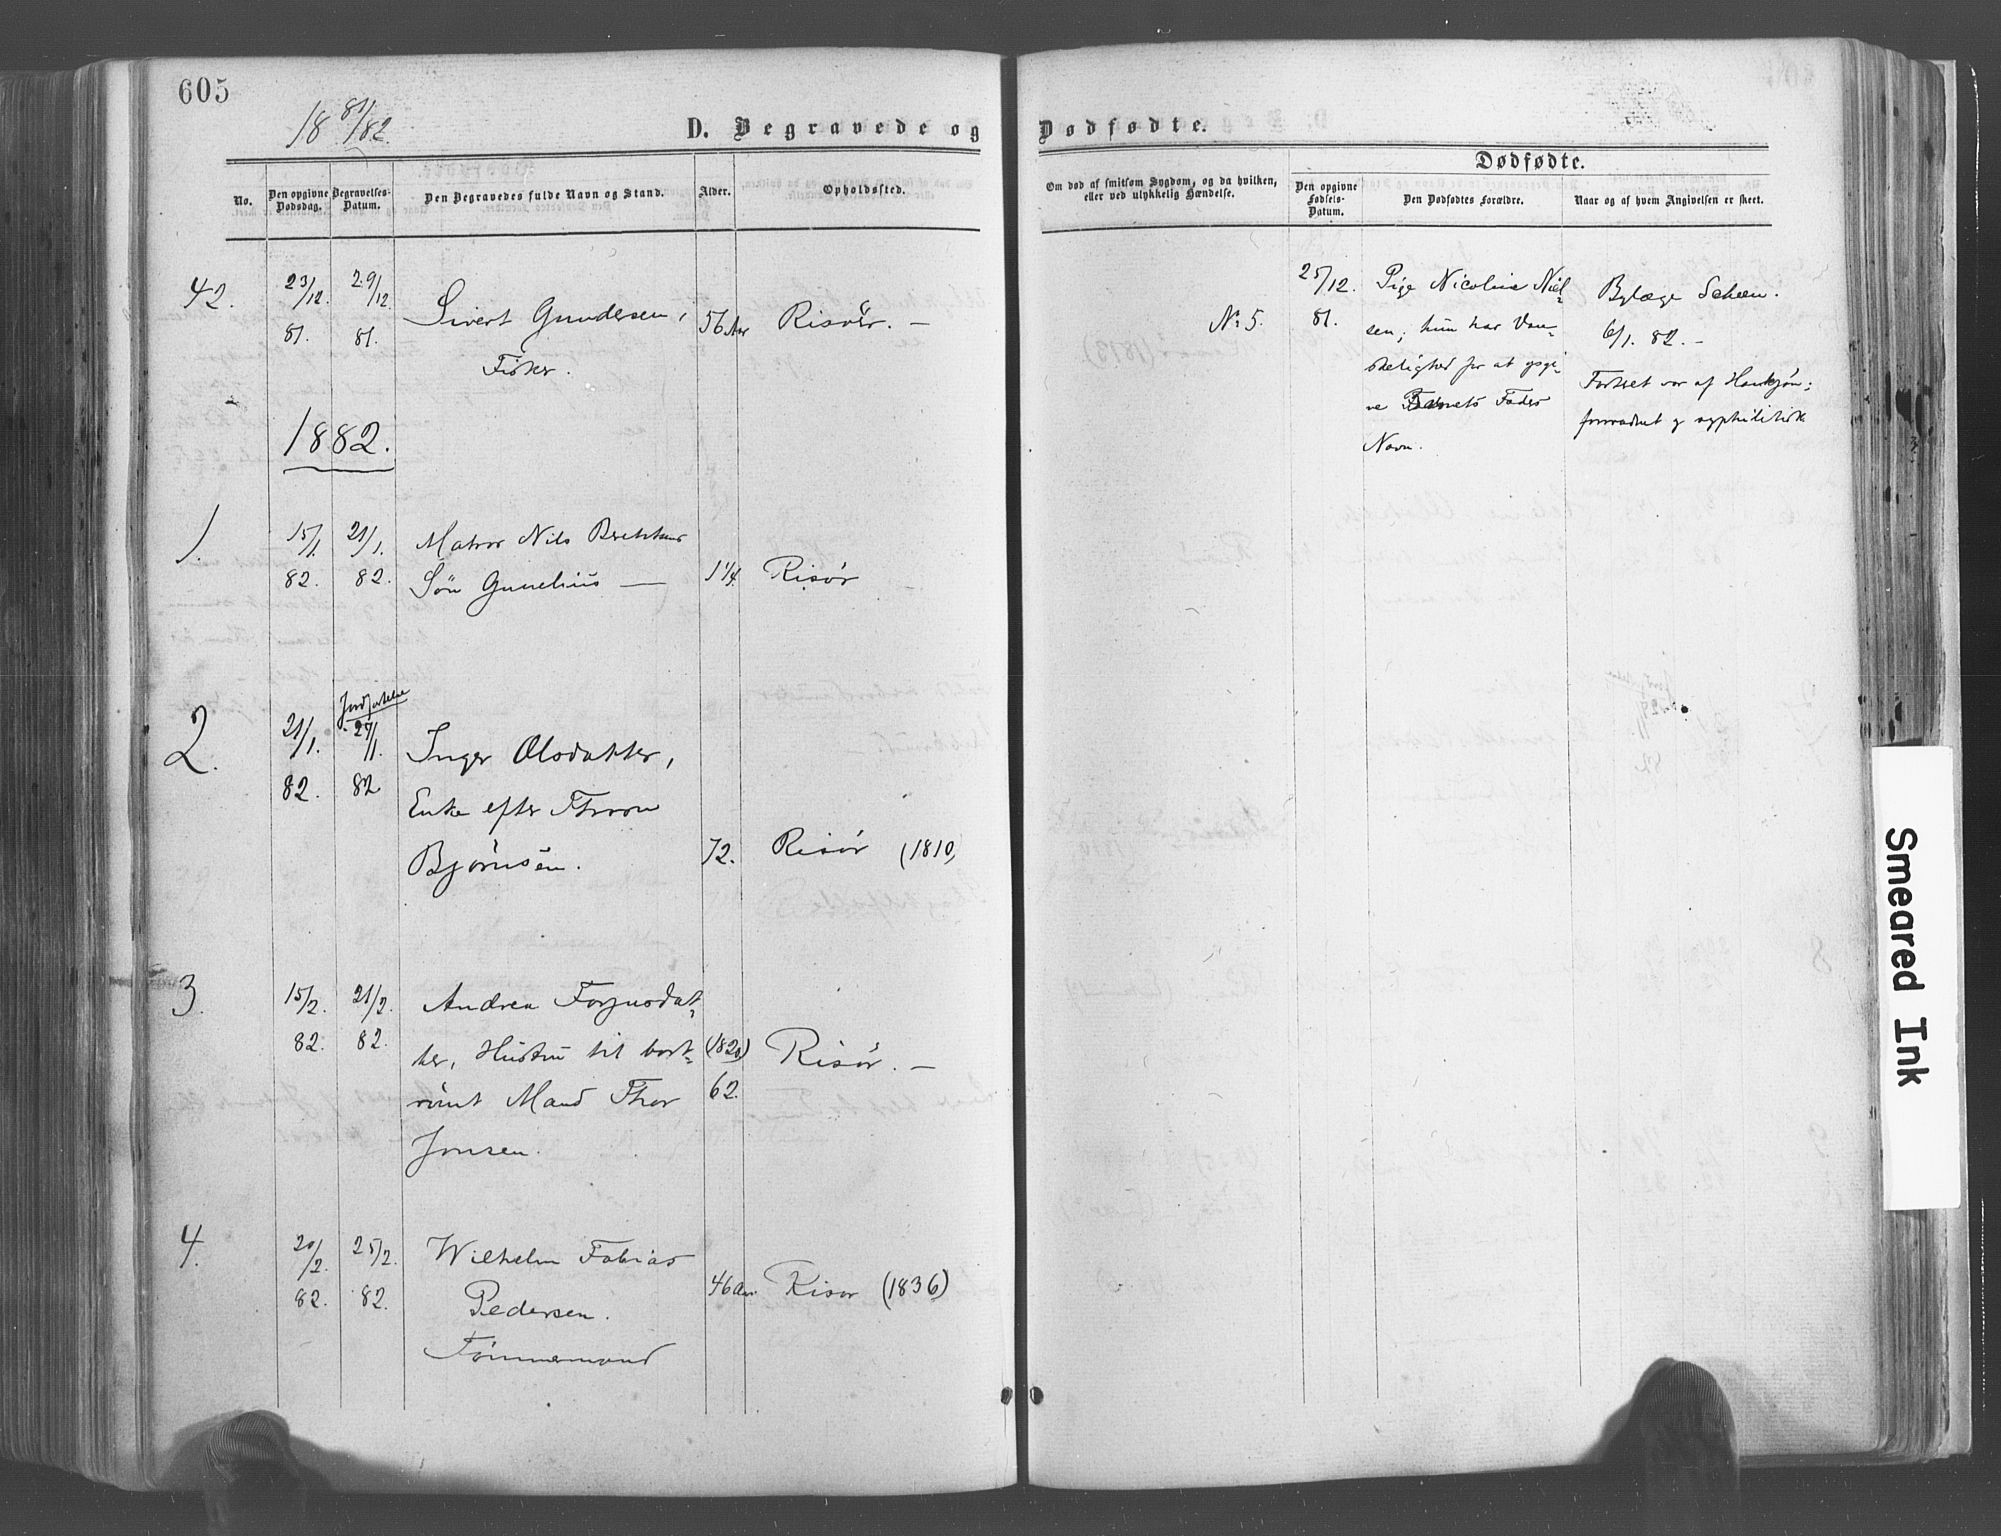 605
18 81/82.
D. Begravede og
Dødfødte.
No.
Den opgivne Dødsdag.
Begravelses-Datum.
Den Begravedes fulde Navn og Stand.
Alder.
Opholdssted.
Om død af smitsom Sygdom, og da hvilken,
eller ved ulykkelig Hændelse.
Dødfødte.
Den opgivne Fødsels-Datum.
Den Dødfødtes Forældre.
Naar og af hvem Angivelsen er skeet.
42.
23/12. 81.
29/12 81.
Sivert Gundersen,
Fisker.
56 Aar
Risør. —
No 5.
25/12. 81.
Pige Nicoline Niel-
sen; hun har Van-
skelighed for at opgi-
ve Barnets Faders
Navn.
Bylæge Scheen.
6/1. 82. —
Fostret var af Hankjøn;
forraadnet og syphilitisk
1882.
1.
15/1 82.
21/1. 82.
Matros Nils
Søn Gunelius —
1 1/4.
Risør
2.
21/1. 82.
Jordfæstelse
27/1. 82
Inger Olsdatter,
Enke efter
Bjørnsen.
72.
Risør (1810)
3.
15/2. 82.
21/2. 82.
Andrea Torjusdat-
ter, Hustru til bort-
rømt Mand Thor
Jonsen.
(1820)
62.
Risør. —
4.
20/2. 82.
25/2. 82.
Wilhelm Tobias
Pedersen.
Tømmermand
46 Aar
Risør (1836)
Smeared Ink